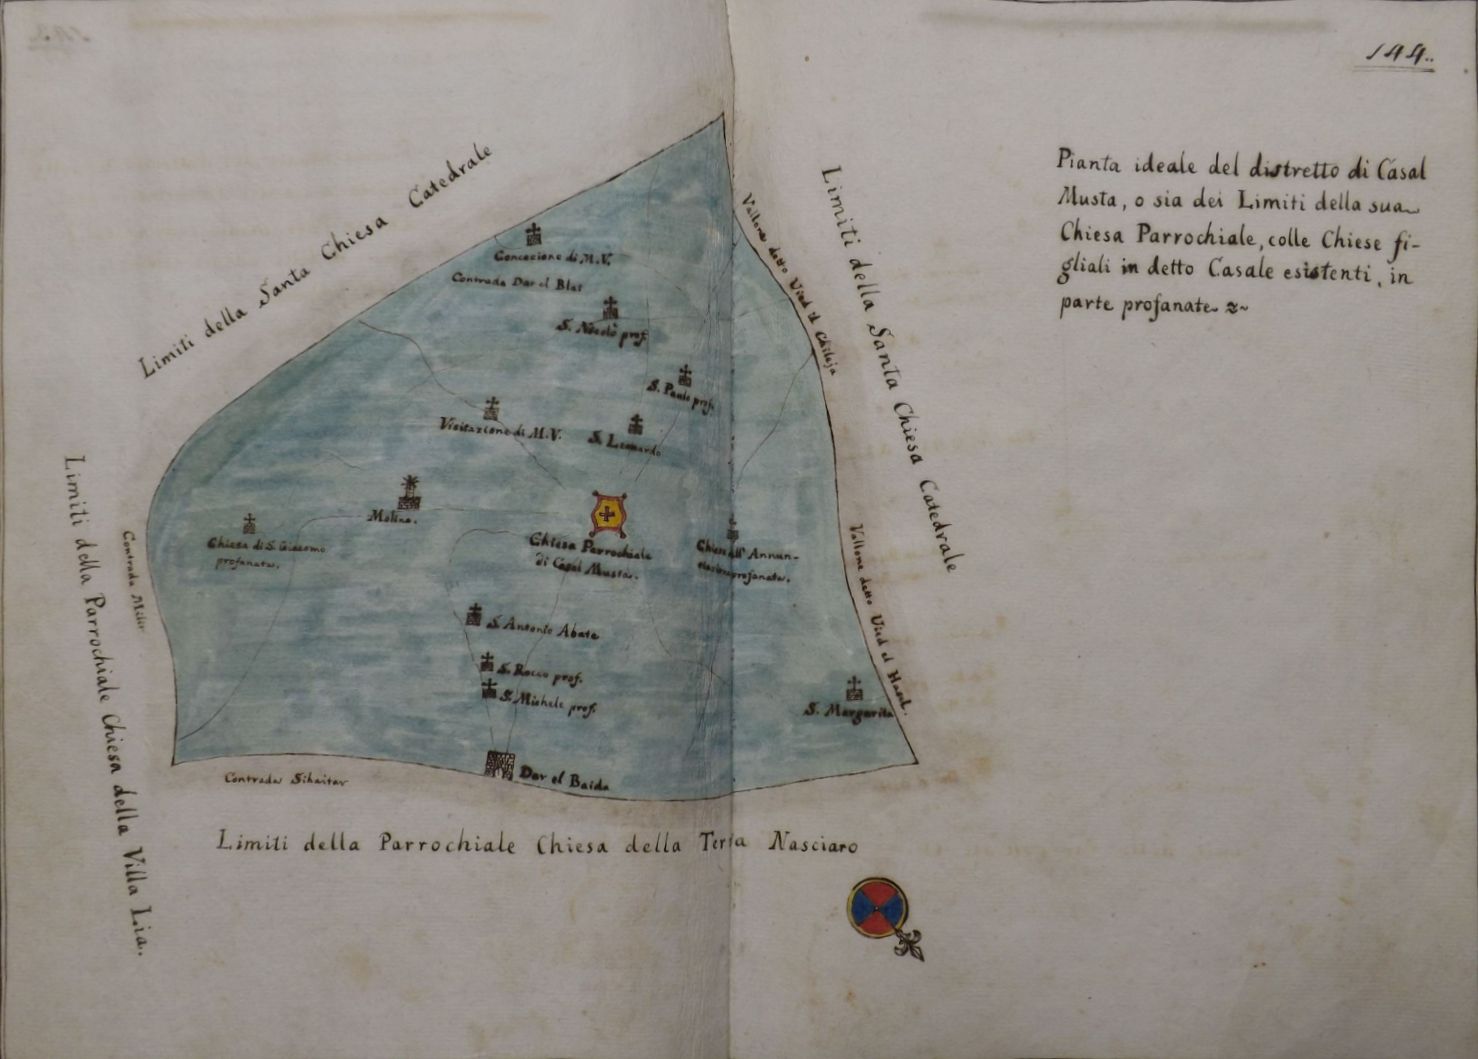 144.
Pianta ideale del distretto di Casal
Musta, o sia dei Limiti della sua
Chiesa Parrochiale, colle Chiese fi-
gliali in detto Casale esistenti, in
parte profanate
Limiti della Santa Chiesa Catedrale
Limiti della Santa Chiesa Catedrale
Vallone detto Uied il
Concezione di M.V.
Contrada Dar el Blat
S. Nicolò prof.
S. Paulo prof.
Visitazione di M.V.
S. Leonardo
Molino.
Chiesa Parrochiale
di Casal Musta.
Chiesa di S. Giacomo
profanata.
Annun-
profanata.
Contrada
Vallone detto Uied el
S. Antonio Abate
S. Rocco prof.
S. Michele prof.
S. Margarita
Dar el Baida
Contrada
Limiti della Parrochiale Chiesa della Villa Lia.
Limiti della Parrochiale Chiesa della Terra Nasciaro